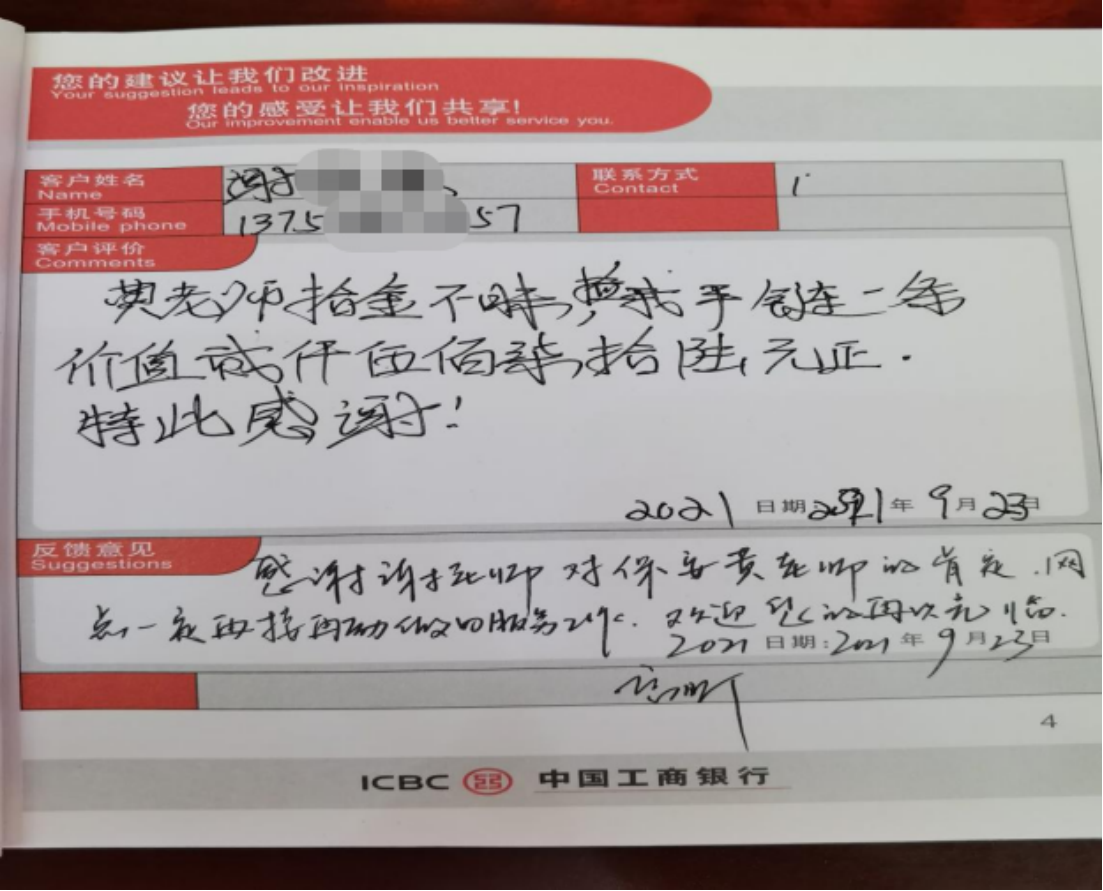 您的建议让我们改进
Your suggestion leads to our inspiration
您的感受让我们共享!
Our improvement enable us better service you.
客户姓名 谢 联系方式
Name Contact
手机号码 1375 57
Mobile phone
客户评价
Comments
黄老师拾金不昧,我手链一条
价值贰仟伍佰柒拾陆元正.
特此感谢!
2021 日期 2021年9月23日
反馈意见
Suggestions
感谢谢老师对保安黄老师的肯定.网
点一定再接再励做好服务工作.欢迎您的再次光临.
2021 日期:2021年9月23日
4
ICBC 中国工商银行